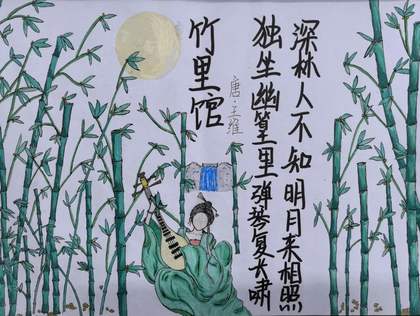 竹里馆
唐·王维
独坐幽篁里弹琴复长啸
深林人不知明月来相照